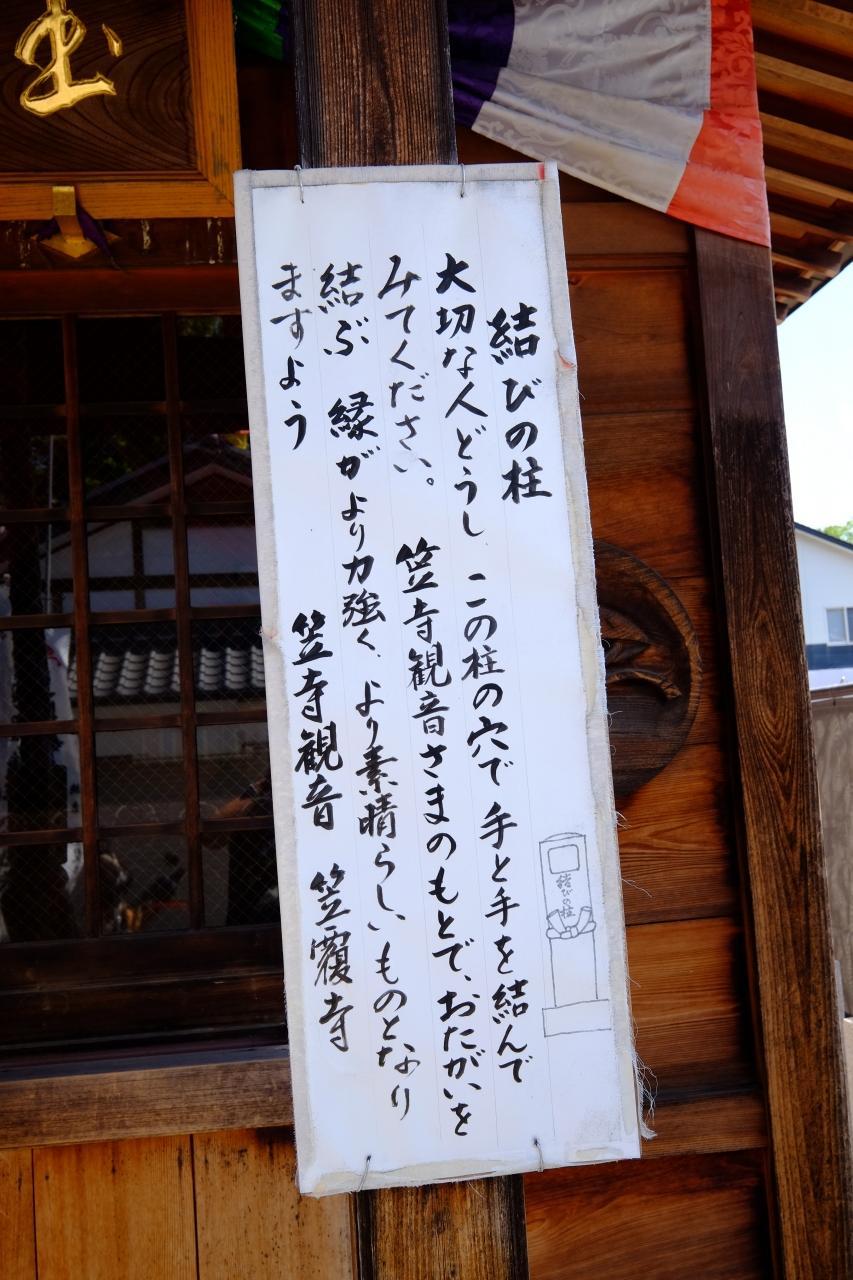 玉
結びの柱
大切な人どうし、この柱の穴で手と手を結んで
みてください。 笠寺観音さまのもとで、おたがいを
結ぶ 縁がより力強く、より素晴らしいものとなり
ますよう
笠寺観音 笠覆寺
結びの柱